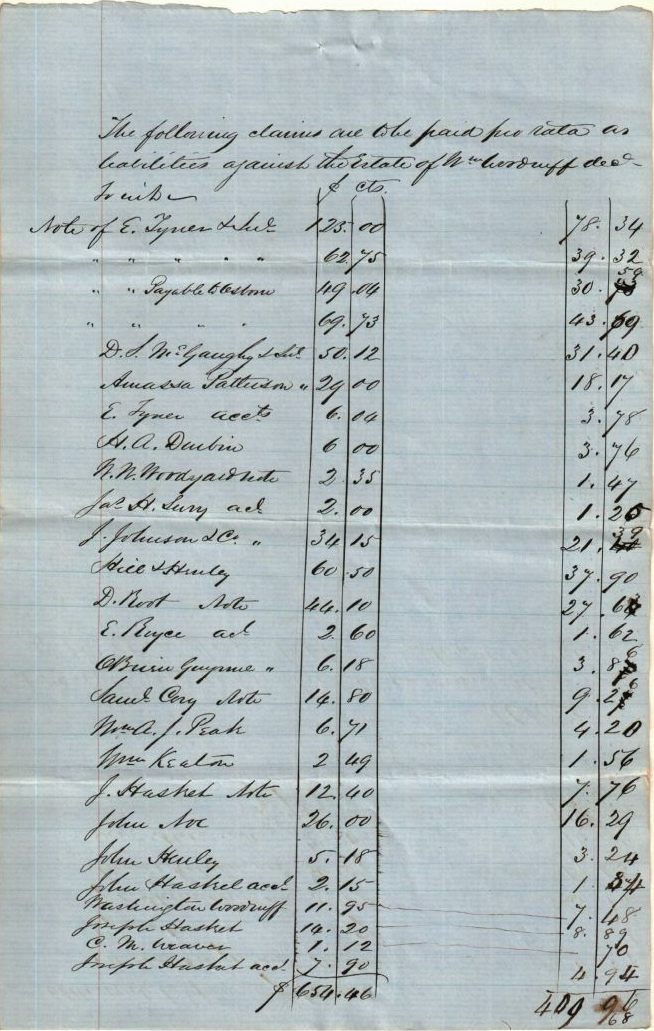 The following claims are to be paid pro rata as
liabilities against the Estate of Wm Woodruff decd
To wit
$ cts.
Note of E. Tyner & Int. 125 00 78. 34
" " " " " 62. 75 39. 32
" " Payable to 49 .04 30. 59
" " " " 69. 73 43. 69
D. S. McGaughy & Int. 50. 12 31. 40
Amassa Patterson " 29 00 18. 17
E. Tyner accts 6. 04 3. 78
H. A. Durbin 6 00 3. 76
W. W. Woodyard note 2 35 1. 47
Jas. H. act 2. 00 1. 25
J. Johnson & Co. " 34 15 21. 39
Hill & Henley 60 .50 37. 90
D. Root Note 44. 10 27 .63
E. Royce act 2. 60 1. 62
OBrien Gwynne " 6. 18 3. 86
Saml. Cory Note 14. 80 9. 26
Wm A. J. Peak 6. 71 4. 20
Wm Keaton 2 49 1. 56
J. Hasket Note 12. 40 7. 76
John Noe 26. 00 16. 29
John Henley 5. 18 3. 24
John Hasket acct 2. 15 1 34
Washington Woodruff 11. 95 7. 48
Joseph Hasket 14. 20 8. 89
C. M. Weaver 1. 12 70
Joseph Hasket acct. 7. 90 4. 94
$ 654. 46 409 96
68